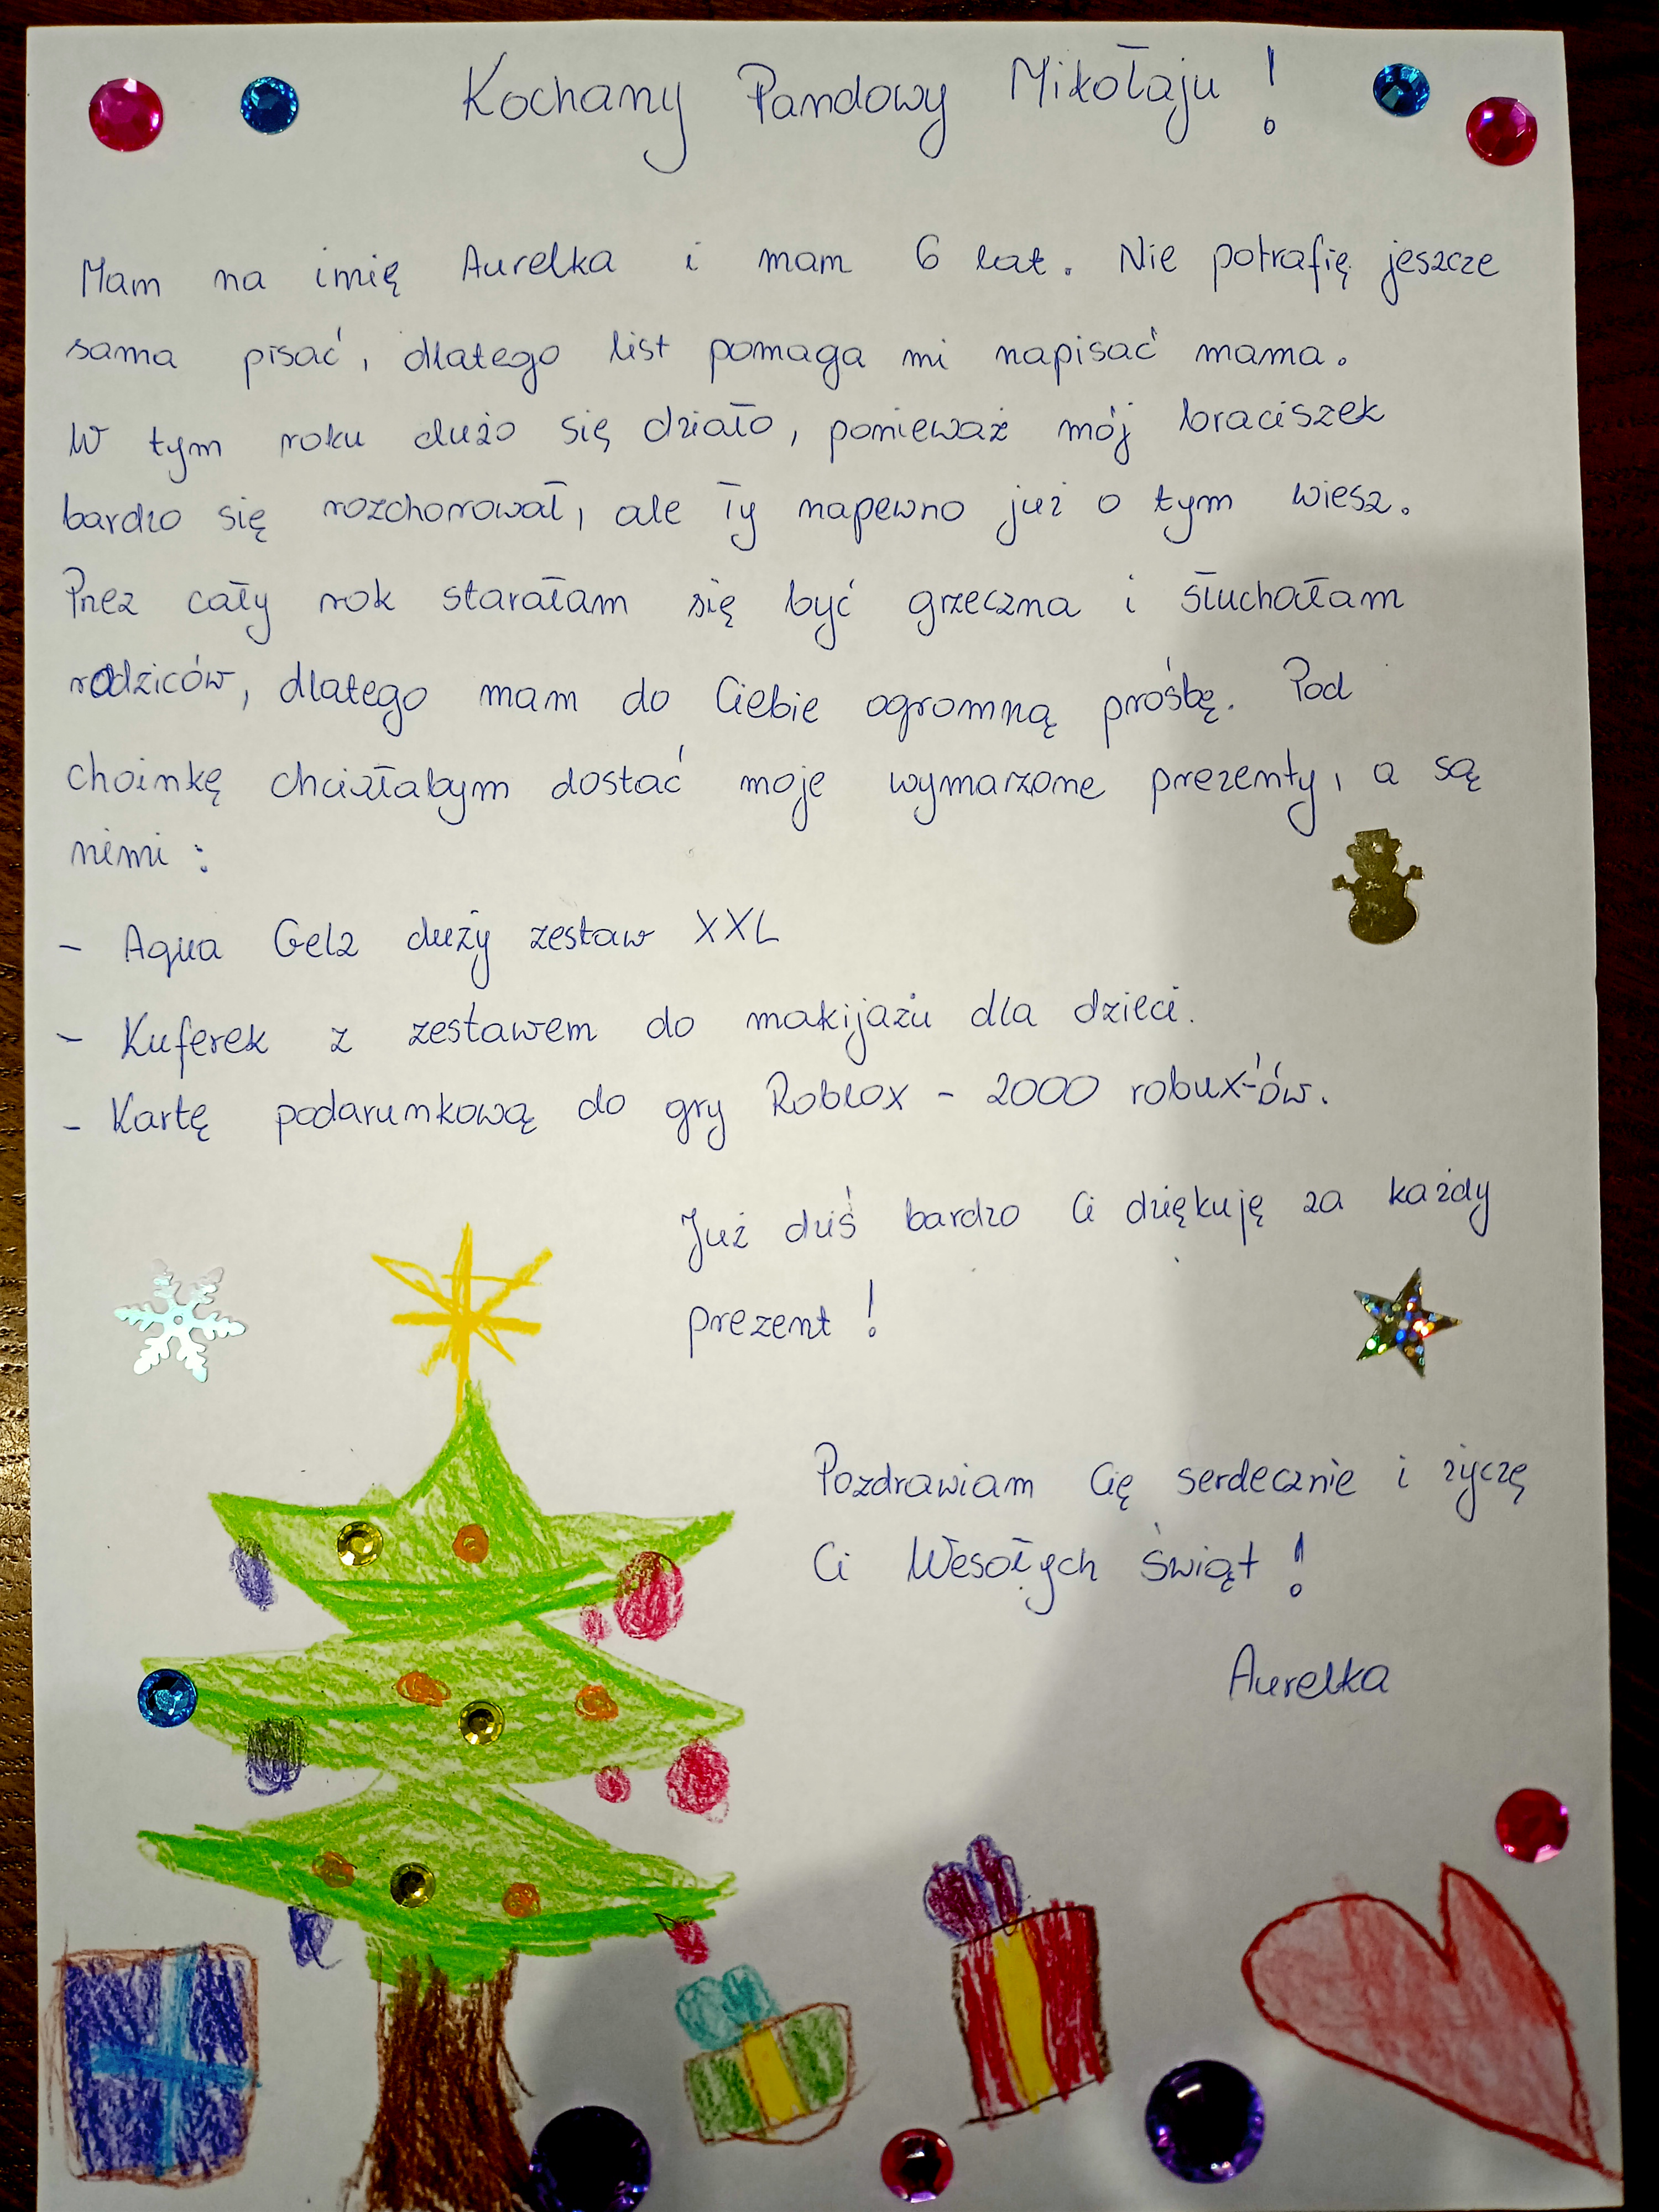 Kochany Pandowy Mikołaju !
Mam na imię Aurelka i mam 6 lat. Nie potrafię jeszcze
sama pisać, dlatego list pomaga mi napisać mama.
W tym roku dużo się działo, ponieważ mój braciszek
bardzo się rozchorował, ale Ty napewno już o tym wiesz.
Przez cały rok starałam się być grzeczna i słuchałam
rodziców, dlatego mam do Ciebie ogromną prośbę. Pod
choinkę chciałabym dostać moje wymarzone prezenty, a są
nimi :
- Aqua Gelz duży zestaw XXL
- Kuferek z zestawem do makijażu dla dzieci.
- Kartę podarunkową do gry Roblox - 2000 robux-ów.
Już dziś bardzo Ci dziękuję za każdy
prezent !
Pozdrawiam Cię serdecznie i życzę
Ci Wesołych Świąt !
Aurelka